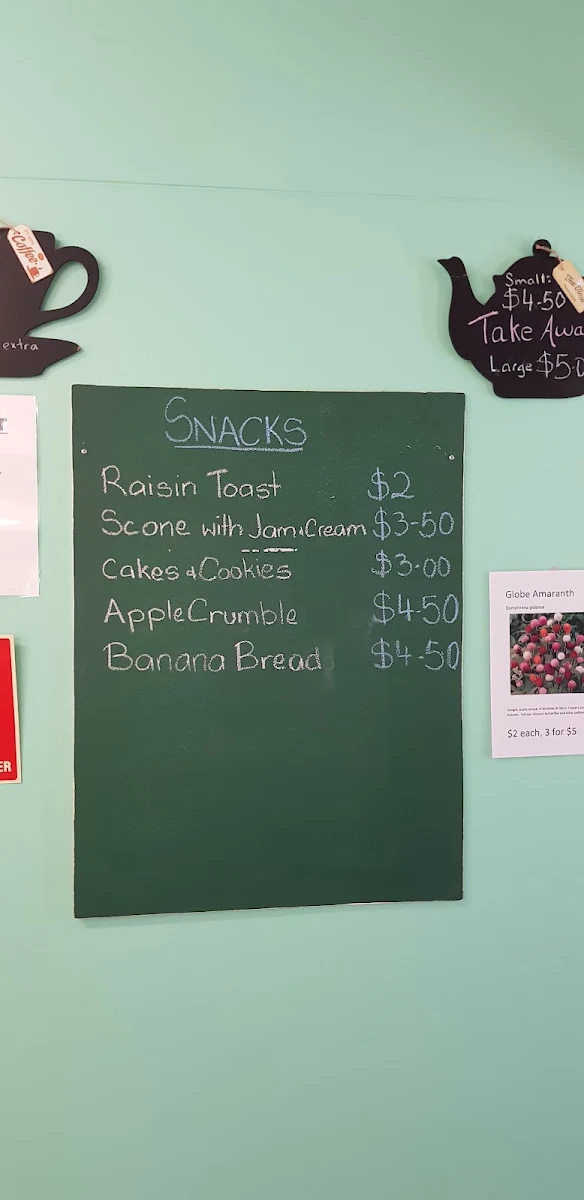 Coffee
extra
Small:
$4-50
Take
Large $5-0
SNACKS
Raisin Toast $2
Scone with Jam & Cream $3-50
Cakes & Cookies $3-00
Apple Crumble $4-50
Banana Bread $4-50
Globe Amaranth
Gomphrena globosa
$2 each, 3 for $5
ER